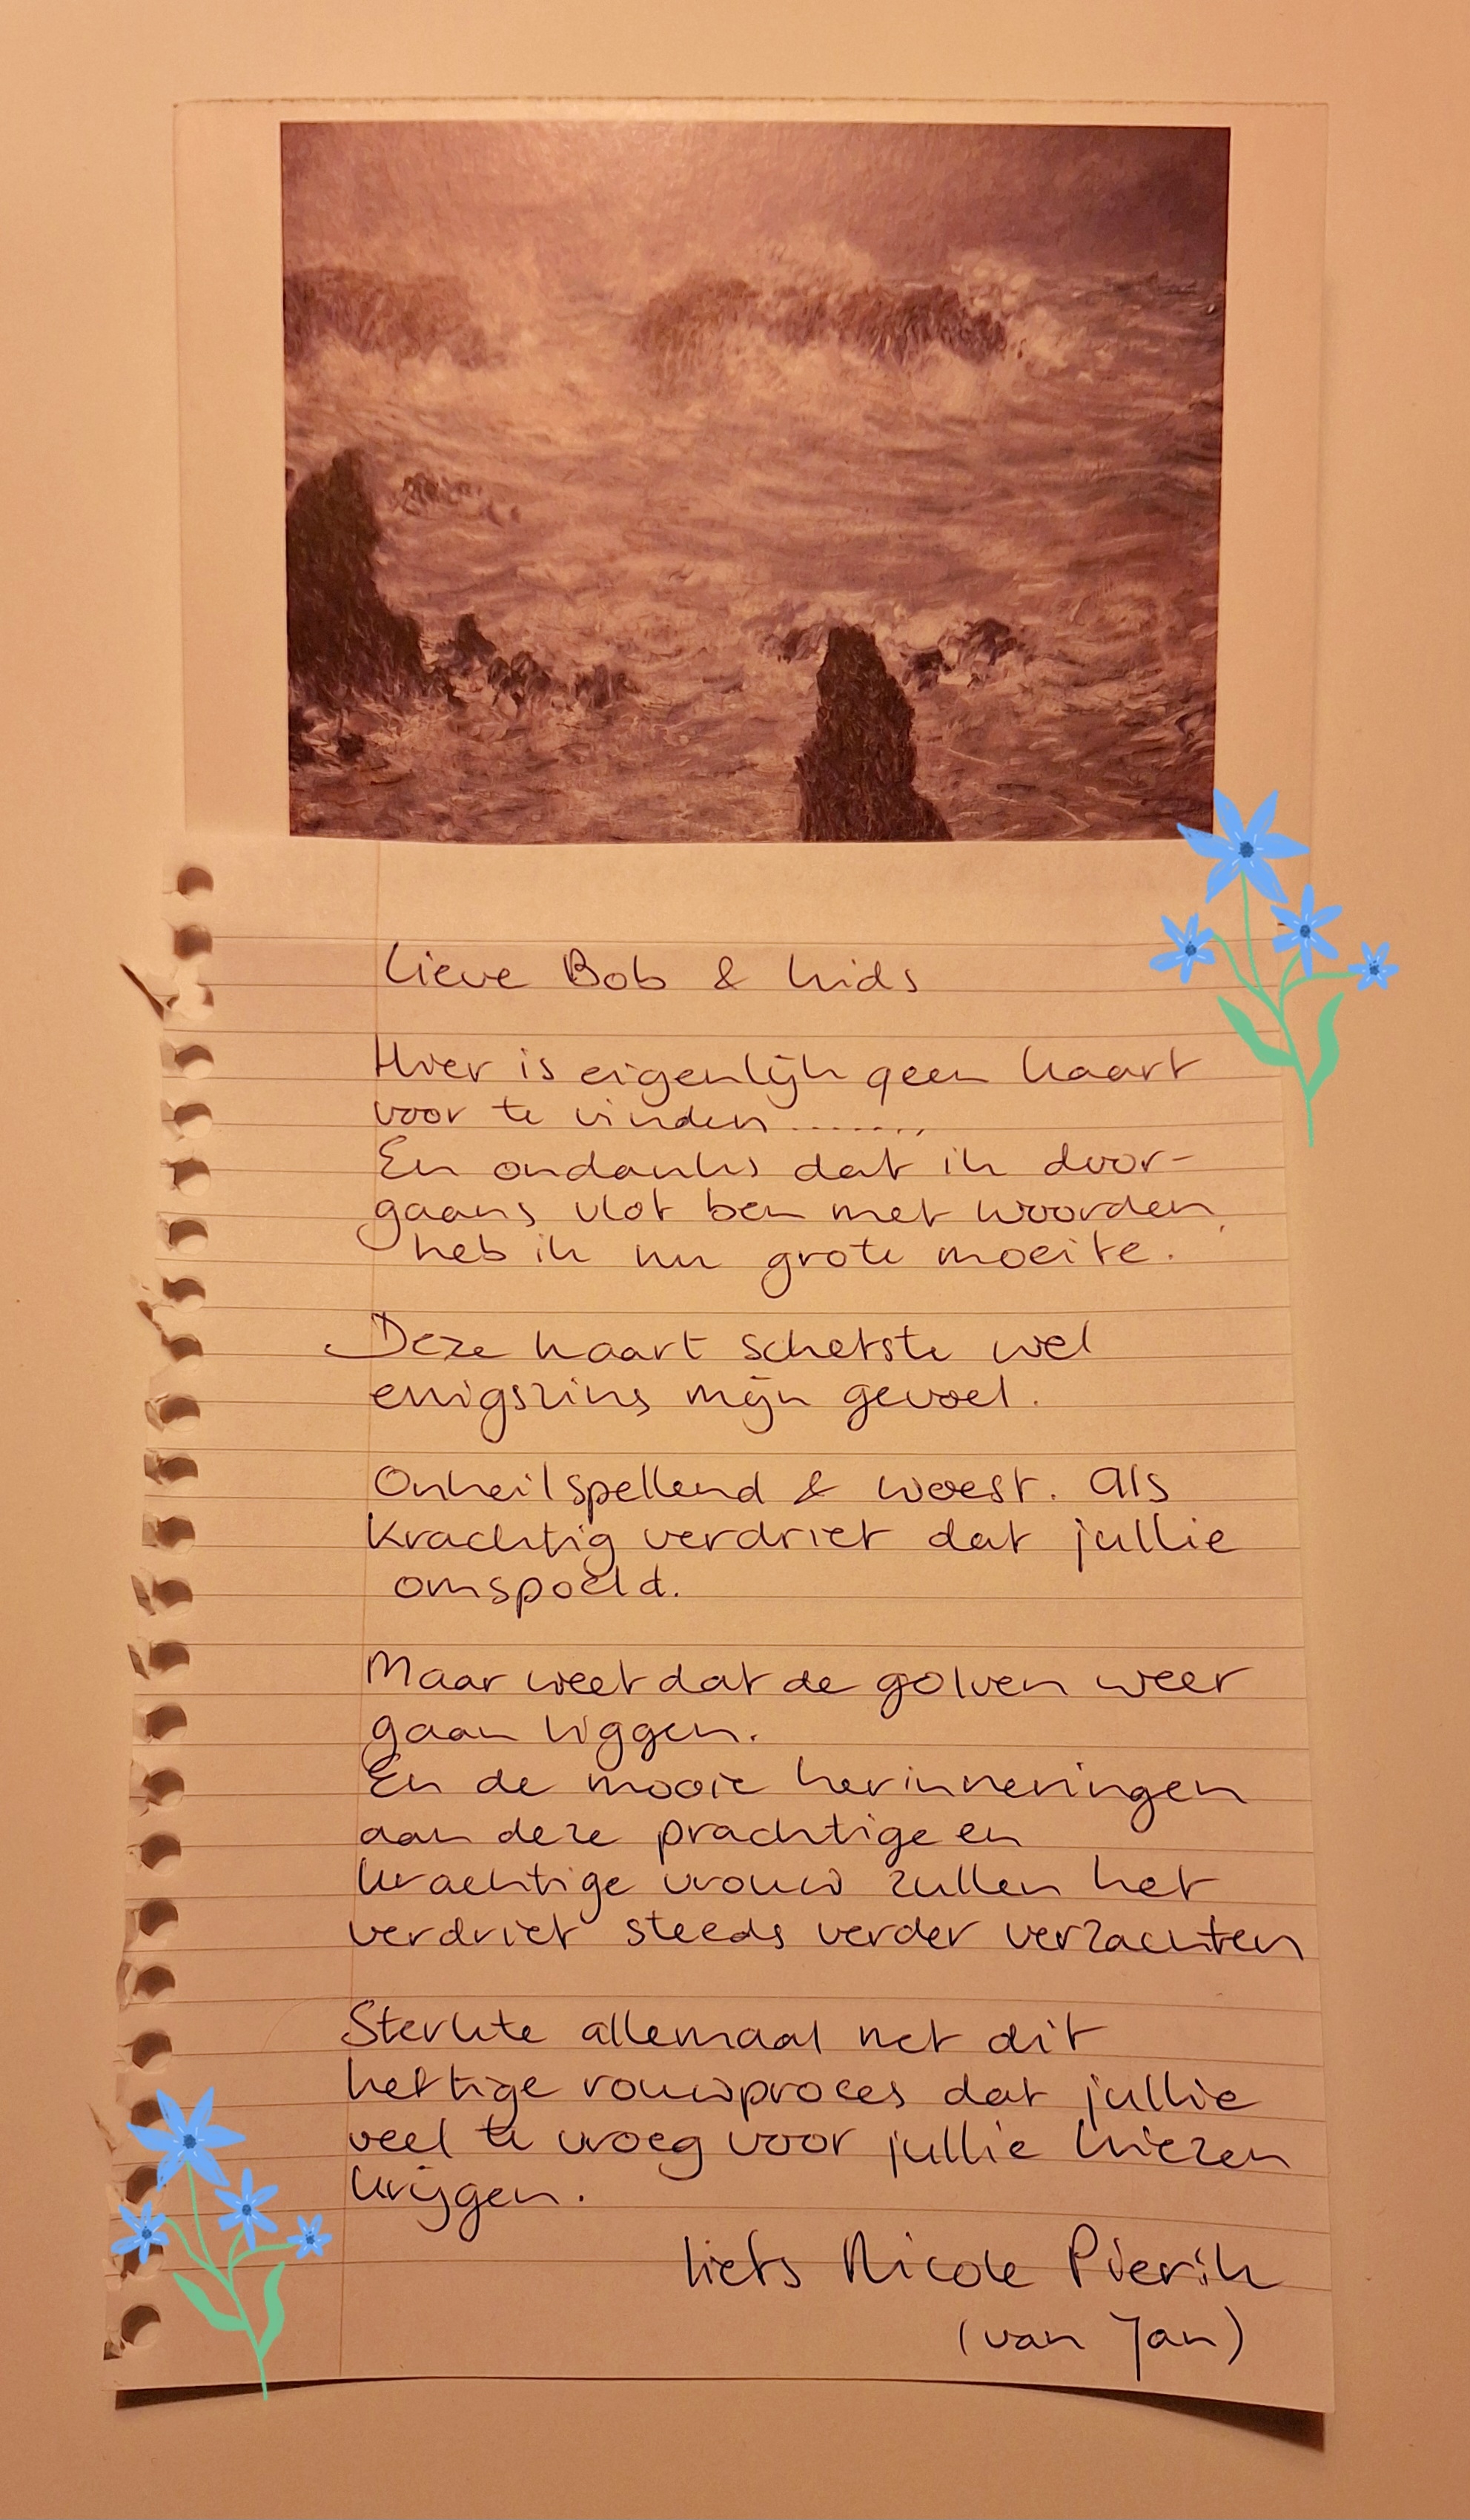 Lieve Bob & kids
Hier is eigenlijk geen kaart
voor te vinden.......
En ondanks dat ik door-
gaans vlot ben met woorden,
heb ik nu grote moeite.
Deze kaart schetste wel
enigszins mijn gevoel.
Onheilspellend & woest. Als
krachtig verdriet dat jullie
omspoeld.
Maar weet dat de golven weer
gaan liggen.
En de mooie herinneringen
aan deze prachtige en
krachtige vrouw zullen het
verdriet steeds verder verzachten
Sterkte allemaal met dit
heftige rouwproces dat jullie
veel te vroeg voor jullie kiezen
krijgen.
liefs Nicole Pierik
(van Jan)